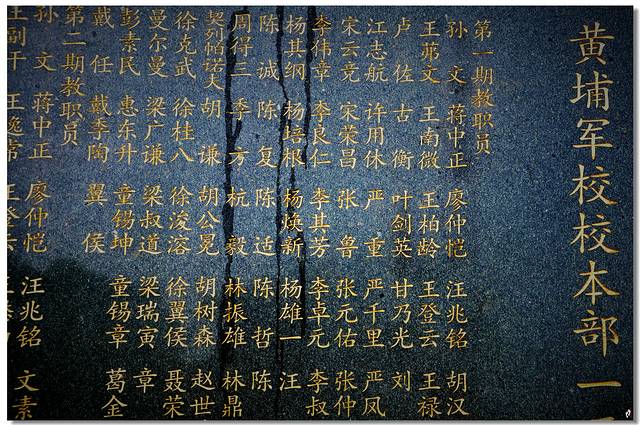 黄埔军校校本部一
第一期教职员
孙文 蒋中正 廖仲恺 汪兆铭 胡汉
王茀文 王南微 王柏龄 王登云 王禄
卢佐 古衡 叶剑英 甘乃光 刘
江志航 许用休 严重 严千里 严凤
宋云竞 宋荣昌 张鲁 张元佑 张仲
李伟章 李良仁 李其芳 李卓元 李叔
杨其纲 杨培根 杨焕新 杨雄一 汪
陈诚 陈复 陈适 陈哲 陈
周得三 季方 杭毅 林振雄 林鼎
契列帕诺夫 胡谦 胡公冕 胡树森 赵世
徐克武 徐桂八 徐浚溶 徐翼侯 聂荣
曼尔曼 梁广谦 梁叔道 梁瑞寅 章
彭素民 惠东升 童锡坤 童锡章 葛金
戴任 戴季陶 翼侯
第二期教职员
孙文 蒋中正 廖仲恺 汪兆铭 文素
王副干 王逸常 王登云